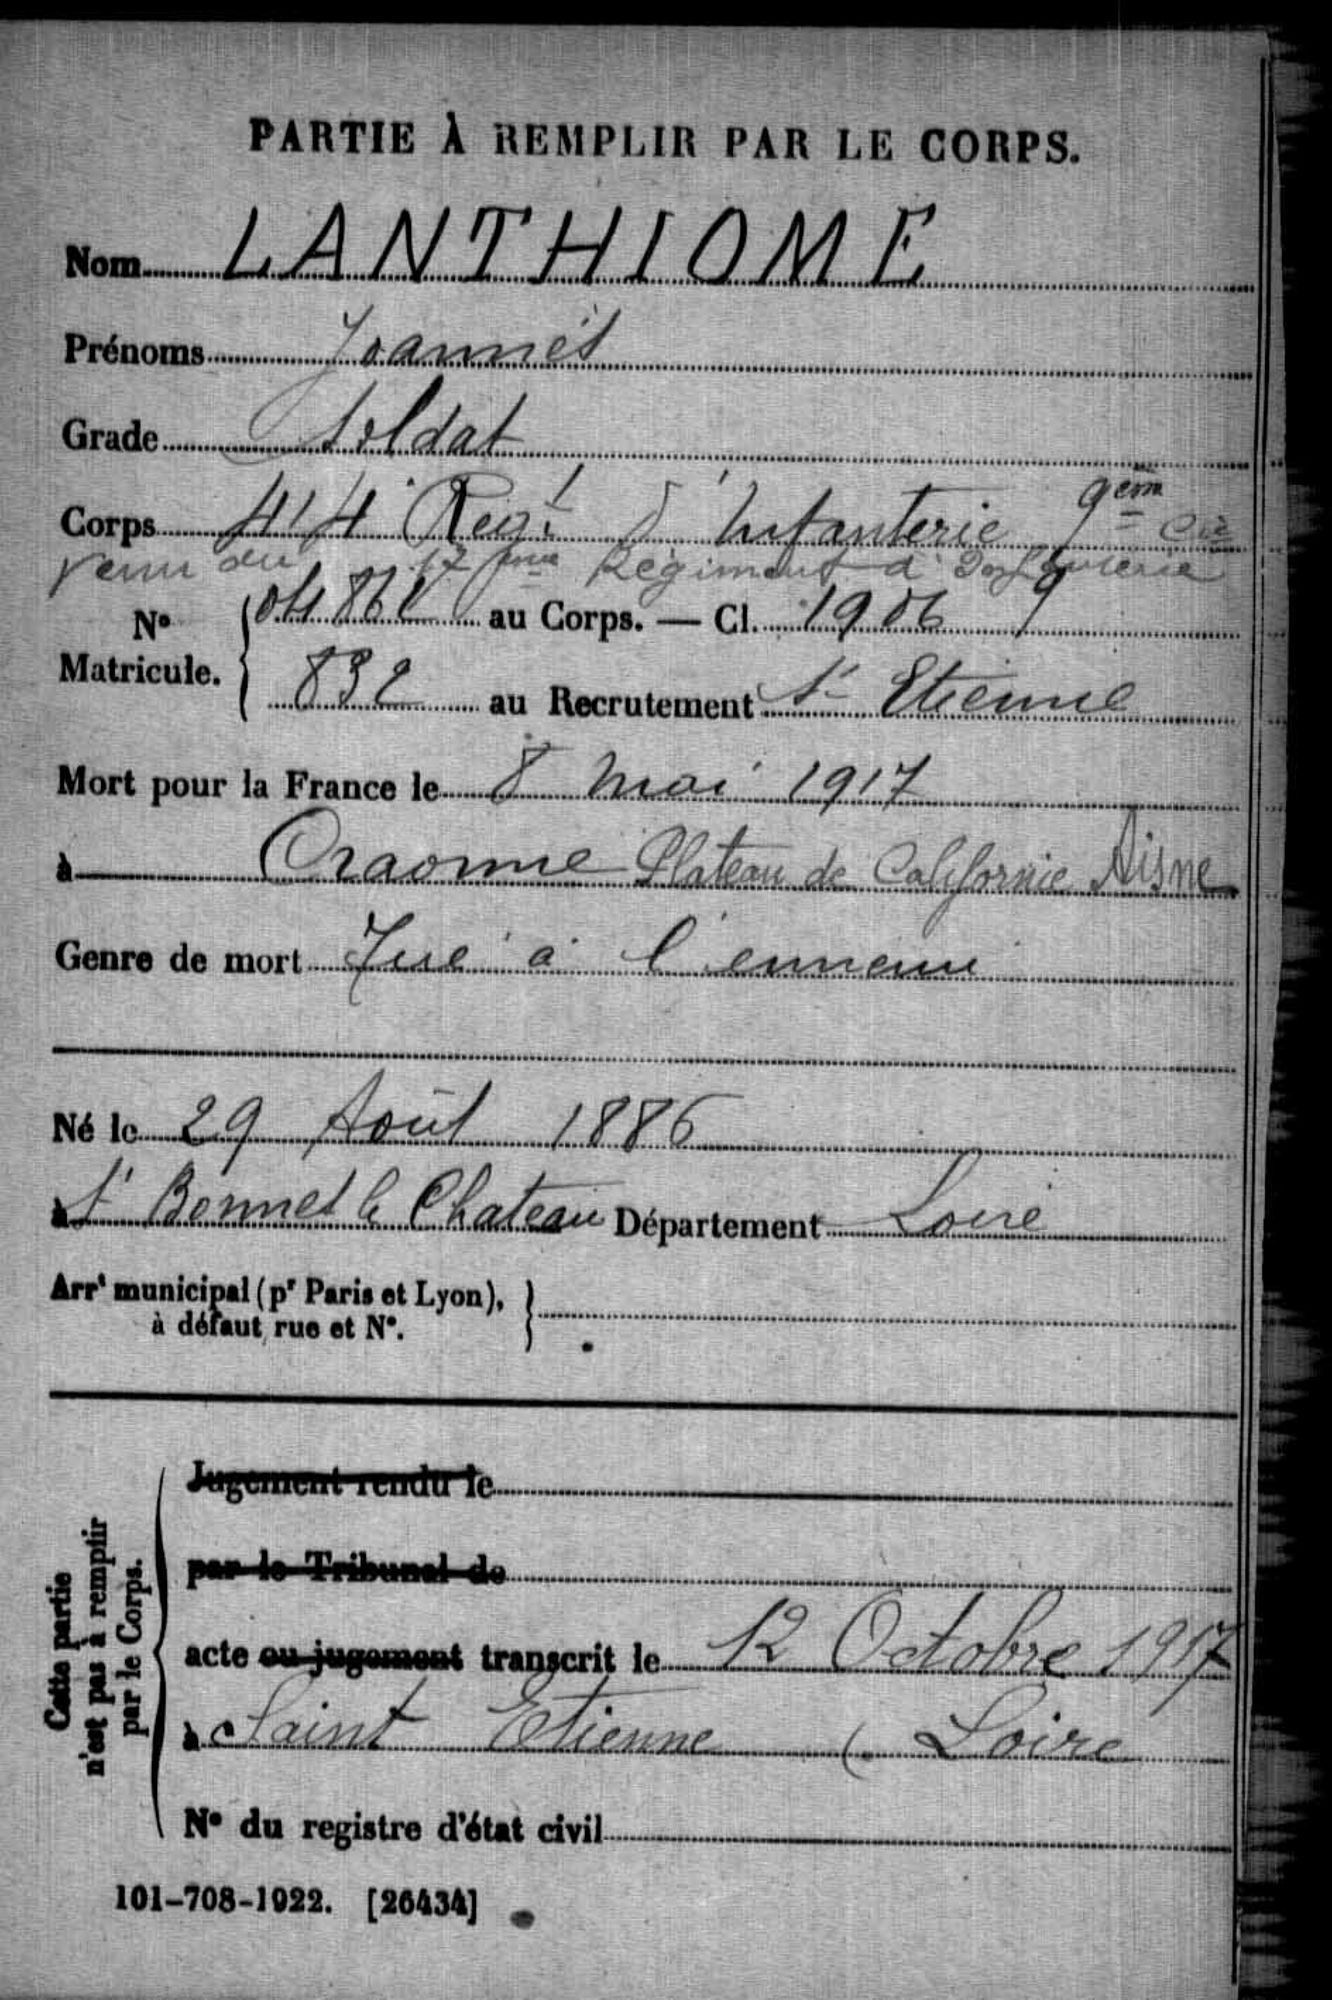 PARTIE À REMPLIR PAR LE CORPS.
Nom LANTHIOME
Prénoms Joannès
Grade Soldat
Corps 414 Régt d'Infanterie 9em Cie
venu du 17 eme Régiment d'Infanterie
No au Corps. — Cl. 1906
Matricule. 832 au Recrutement St Etienne
Mort pour la France le 8 mai 1917
à Craonne Plateau de Californie Aisne
Genre de mort Tué à l'ennemi
Né le 29 Août 1886
à St Bonnet le Chateau Département Loire
Arrt municipal (pr Paris et Lyon),
à défaut rue et No.
Cette partie
n'est pas à remplir
par le Corps.
Jugement rendu le
par le Tribunal de
acte ou jugement transcrit le 12 Octobre 1917
à Saint Etienne (Loire
No du registre d'état civil
101-708-1922. [26434]